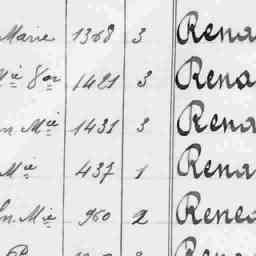 Marie 1368 3 Rena
Mie 1421 3 Rena
Mie 1431 3 Rena
Mie 437 1 Rena
Mie 960 2 Rene